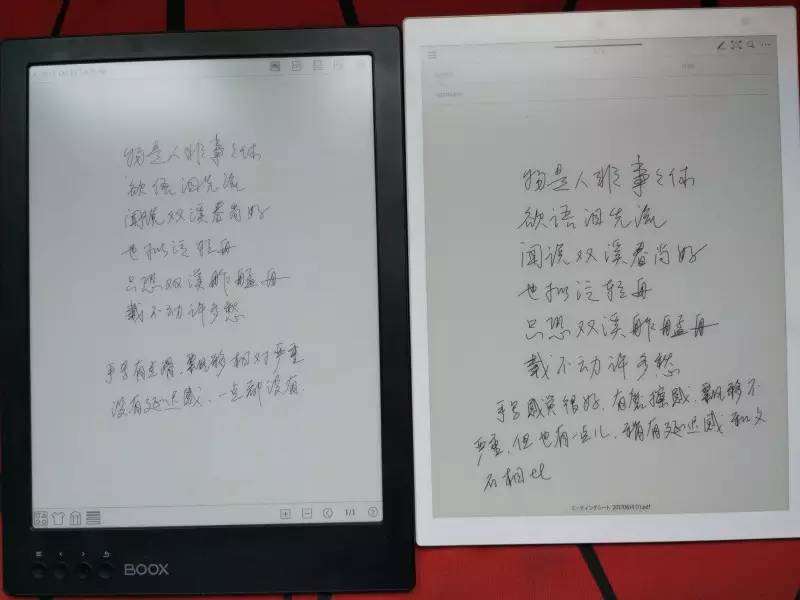 物是人非事事休
欲语泪先流
闻说双溪春尚好
也拟泛轻舟
只恐双溪舴艋舟
载不动许多愁
手写有点滑，飘移相对严重
没有延迟感，一点都没有
1/1
BOOX
物是人非事事休
欲语泪先流
闻说双溪春尚好
也拟泛轻舟
只恐双溪舴艋舟
载不动许多愁
手写感觉很好，有磨擦感，飘移不
严重，但也有一点儿，稍有延迟感 和文
石相比